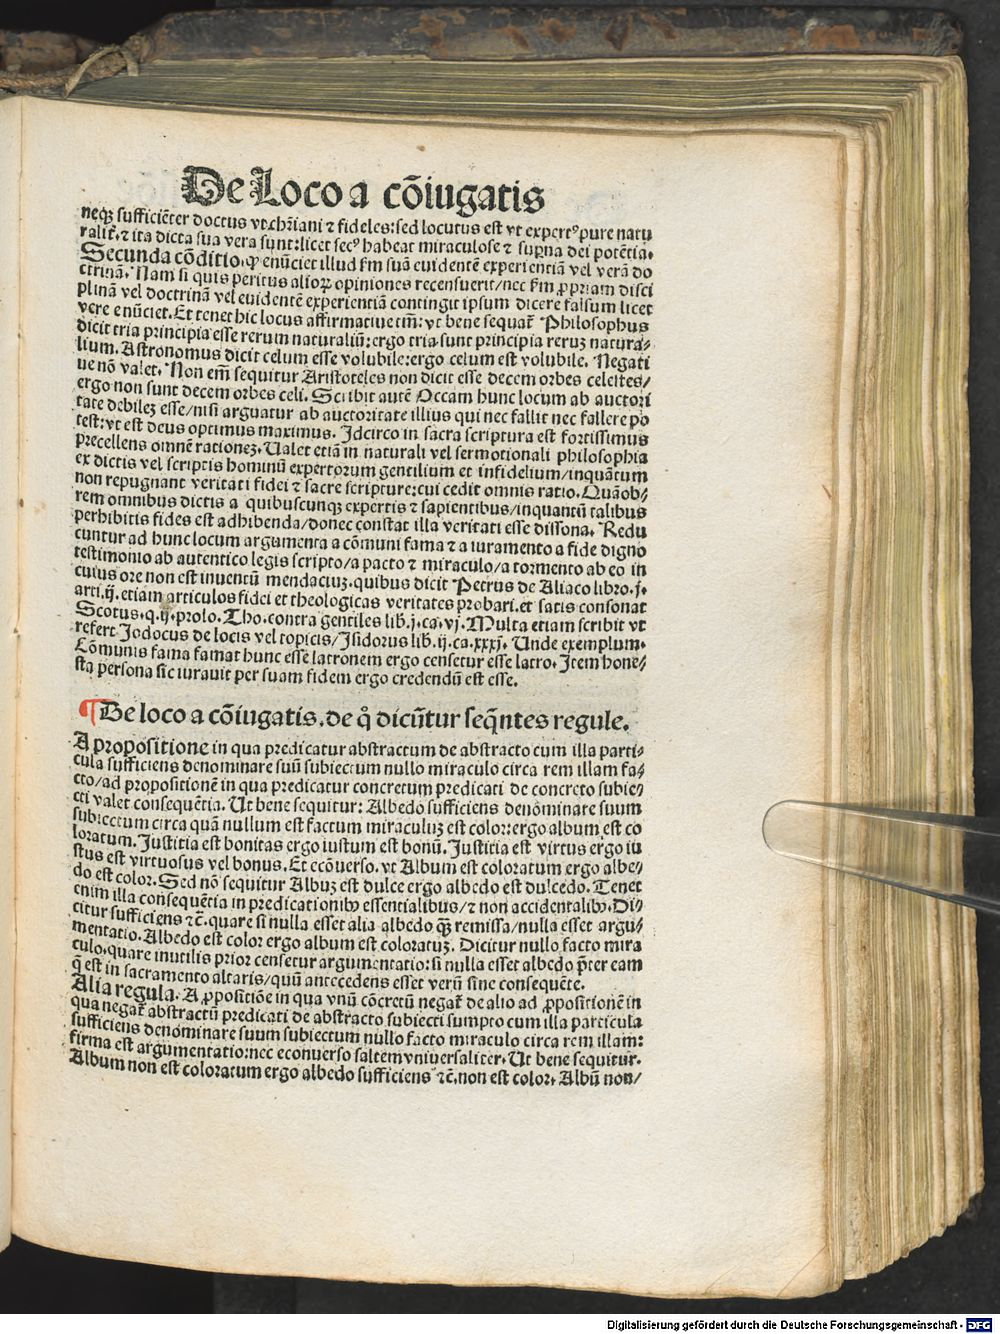 De Loco a cōiugatis
neqȝ sufficiēter doctus vt chr̄iani ⁊ fideles: sed locutus est vt expertꝰ pure natu
ralit̄, ⁊ ita dicta sua vera sunt: licet secꝰ habeat miraculose ⁊ sup̄na dei potētia.
Secunda cōditio, ꝙ enūciet illud km̄ suā euidentē experientiā vel verā do
ctrinā. Nam si quis peritus alioꝝ opiniones recensuerit/nec km̄ ꝓpriam disci
plinā vel doctrinā vel euidentē experientiā contingit ipsum dicere falsum licet
vere enūciet. Et tenet hic locus affirmatiue tm̄: vt bene sequat̄ Philosophus
dicit tria principia esse rerum naturaliū: ergo tria sunt principia rerūȝ natura⸗
lium. Astronomus dicit celum esse volubile: ergo celum est volubile. Negati
ue nō valet. Non em̄ sequitur Aristoteles non dicit esse decem orbes celestes/
ergo non sunt decem orbes celi. Scribit autē Occam hunc locum ab auctori
tate debileȝ esse/nisi arguatur ab auctoritate illius qui nec fallit nec fallere po
test: vt est deus optimus maximus. Idcirco in sacra scriptura est fortissimus
precellens omnē rationeȝ. Ualet etiā in naturali vel sermotionali philosophia
ex dictis vel scriptis hominū expertorum gentilium et infidelium/inquātum
non repugnant veritati fidei ⁊ sacre scripture: cui cedit omnis ratio. Quāob⸗
rem omnibus dictis a quibuscunqȝ expertis ⁊ sapientibus/inquantū talibus
perhibitis fides est adhibenda/donec constat illa veritati esse dissona. Redu
cuntur ad hunc locum argumenta a cōmuni fama ⁊ a iuramento a fide digno
testimonio ab autentico legis scripto/a pacto ⁊ miraculo/a tormento ab eo in
cuius ore non est inuentū mendaciuȝ. quibus dicit Petrus de Aliaco libro. j.
arti. ij. etiam articulos fidei et theologicas veritates probari. et satis consonat
Scotus. q. ij. prolo. Tho. contra gentiles lib. j. ca. vj. Multa etiam scribit vt
refert Jodocus de locis vel topicis/Isidorus lib. ij. ca. xxxj. Unde exemplum.
Cōmunis fama famat hunc esse latronem ergo censetur esse latro. Item hone⸗
sta persona sic iurauit per suam fidem ergo credendū est esse.
¶ De loco a cōiugatis. de q̊ dicūtur seq̄ntes regule.
A propositione in qua predicatur abstractum de abstracto cum illa parti⸗
cula sufficiens denominare suū subiectum nullo miraculo circa rem illam fa⸗
cto/ad propositionē in qua predicatur concretum predicati de concreto subie⸗
cti valet consequētia. Ut bene sequitur: Albedo sufficiens denōminare suum
subiectum circa quā nullum est factum miraculuȝ est color: ergo album est co
loratum. Justitia est bonitas ergo iustum est bonū. Justitia est virtus ergo iu
stus est virtuosus vel bonus. Et ecōuerso. vt Album est coloratum ergo albe⸗
do est color. Sed nō sequitur Albuȝ est dulce ergo albedo est dulcedo. Tenet
enim illa consequētia in predicationibȝ essentialibus/⁊ non accidentalibȝ. Di⸗
citur sufficiens ⁊c̄. quare si nulla esset alia albedo qȝ̄ remissa/nulla esset argu⸗
mentatio. Albedo est color ergo album est coloratuȝ. Dicitur nullo facto mira
culo. quare inutilis prior censetur argumentatio: si nulla esset albedo p̄ter eam
q̄ est in sacramento altaris/quū antecedens esset verū sine consequēte.
Alia regula. A ꝓpositiōe in qua vnū cōcretū negat̄ de alio ad ꝓpositionē in
qua negat̄ abstractū predicati de abstracto subiecti sumpto cum illa particula
sufficiens denominare suum subiectum nullo facto miraculo circa rem illam:
firma est argumentatio: nec econuerso saltem vniuersaliter. Ut bene sequitur.
Album non est coloratum ergo albedo sufficiens ⁊c̄. non est color. Albū non/
Digitalisierung gefördert durch die Deutsche Forschungsgemeinschaft - DFG